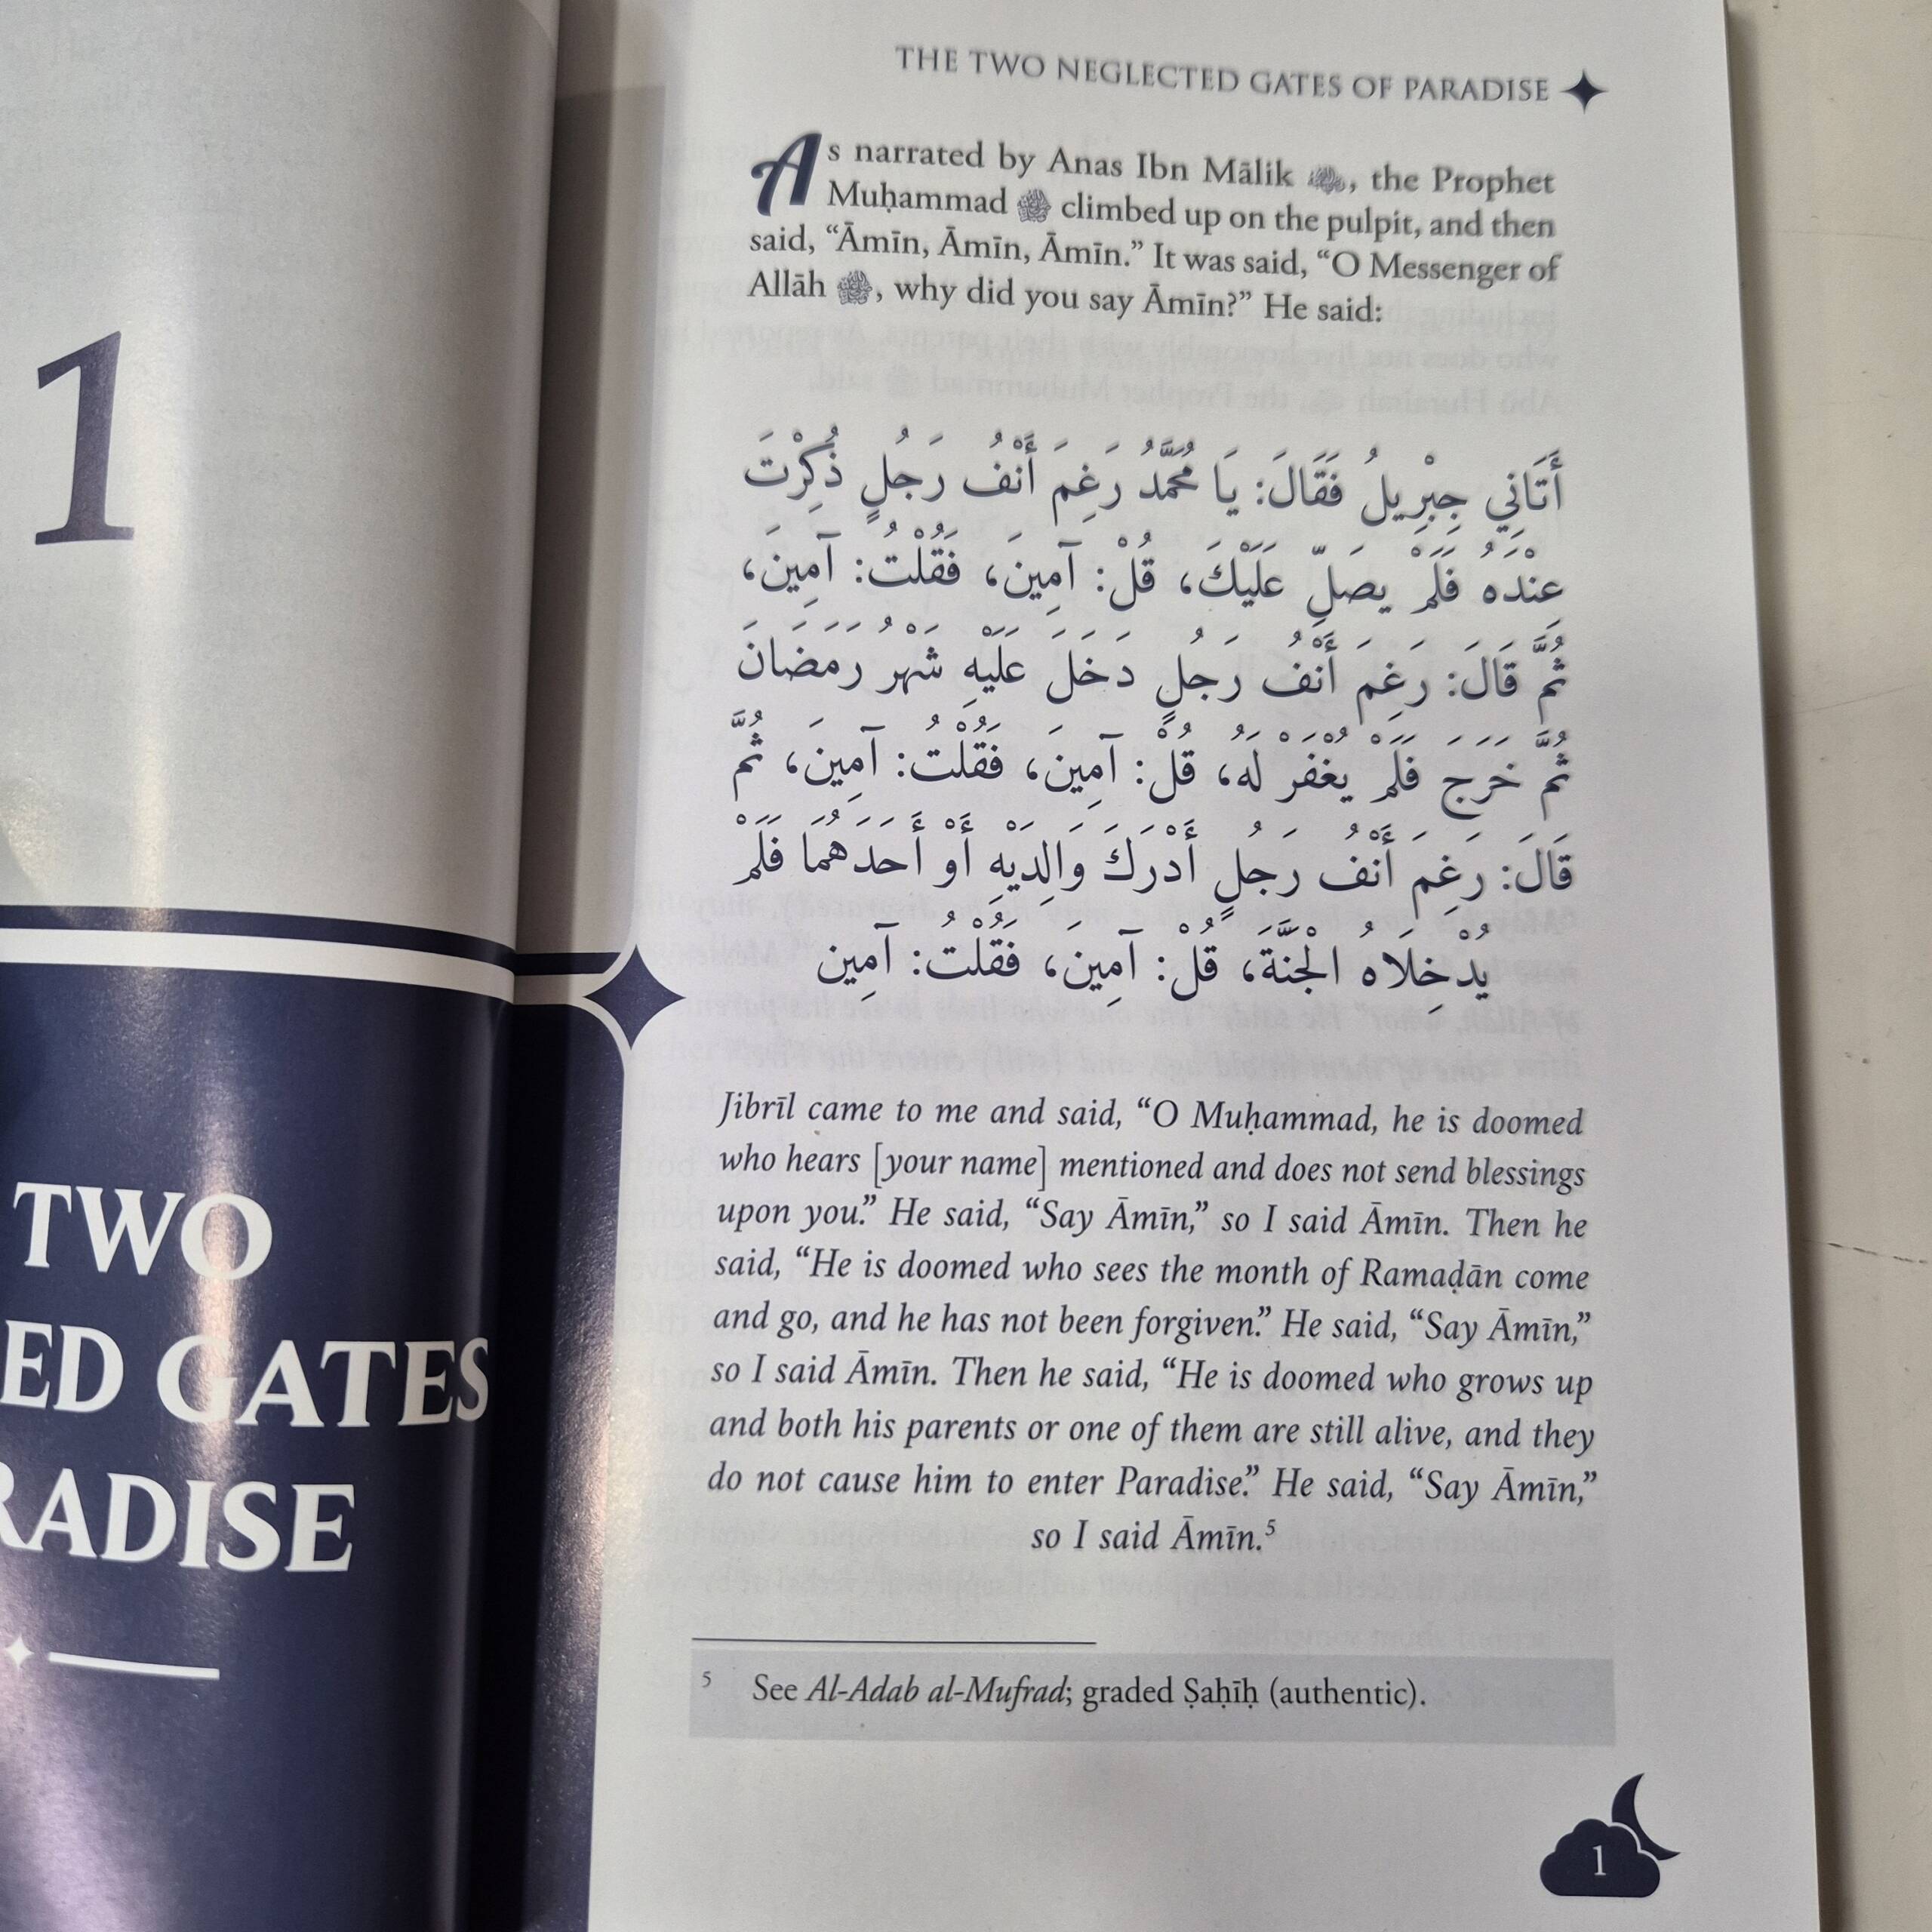 1
TWO
ED GATES
RADISE
THE TWO NEGLECTED GATES OF PARADISE
As narrated by Anas Ibn Mālik, the Prophet
Muḥammad ﷺ climbed up on the pulpit, and then
said, “Āmīn, Āmīn, Āmīn.” It was said, “O Messenger of
Allāh ﷺ, why did you say Āmīn?” He said:
أَتَانِي جِبْرِيلُ فَقَالَ: يَا مُحَمَّدُ رَغِمَ أَنْفُ رَجُلٍ ذُكِرْتَ
عِنْدَهُ فَلَمْ يصَلِّ عَلَيْكَ، قُلْ: آمِينَ، فَقُلْتُ: آمِينَ،
ثُمَّ قَالَ: رَغِمَ أَنْفُ رَجُلٍ دَخَلَ عَلَيْهِ شَهْرُ رَمَضَانَ
ثُمَّ خَرَجَ فَلَمْ يُغْفَرْ لَهُ، قُلْ: آمِينَ، فَقُلْتُ: آمِينَ، ثُمَّ
قَالَ: رَغِمَ أَنْفُ رَجُلٍ أَدْرَكَ وَالِدَيْهِ أَوْ أَحَدَهُمَا فَلَمْ
يُدْخِلَاهُ الْجَنَّةَ، قُلْ: آمِينَ، فَقُلْتُ: آمِين
Jibrīl came to me and said, “O Muḥammad, he is doomed
who hears [your name] mentioned and does not send blessings
upon you.” He said, “Say Āmīn,” so I said Āmīn. Then he
said, “He is doomed who sees the month of Ramaḍān come
and go, and he has not been forgiven.” He said, “Say Āmīn,”
so I said Āmīn. Then he said, “He is doomed who grows up
and both his parents or one of them are still alive, and they
do not cause him to enter Paradise.” He said, “Say Āmīn,”
so I said Āmīn.⁵
5 See Al-Adab al-Mufrad; graded Ṣaḥīḥ (authentic).
1